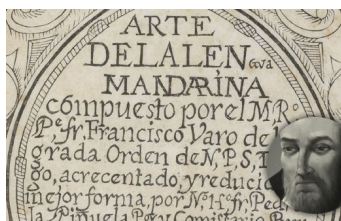 ARTE
DELALENGVA
MANDARINA
cõmpuesto por el M.R.º
P.e fr. Francisco Varo de la
grada Orden de N.P.S,
go, acrecentado, y reducid
mejor forma, por N.º H.º fr. Ped
la Piñuela